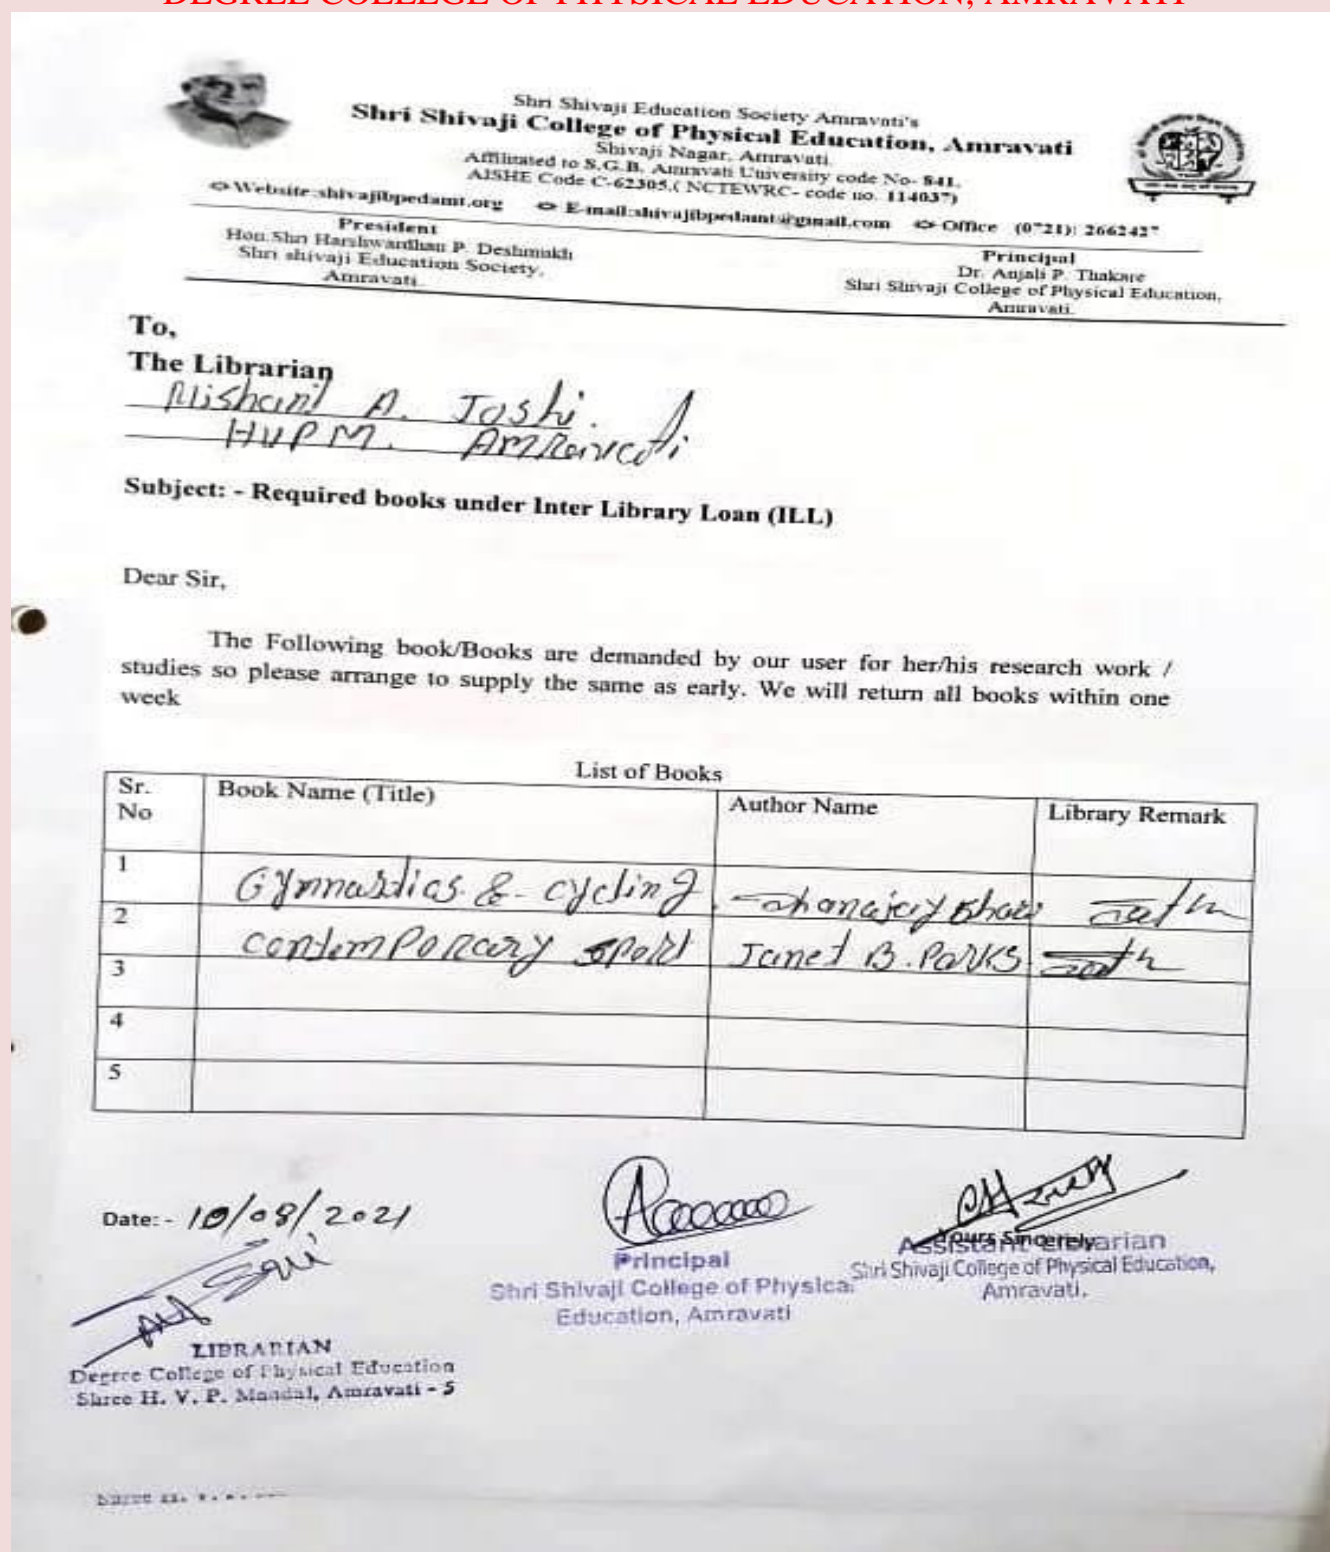 DEGREE COLLEGE OF PHYSICAL EDUCATION, AMRAVATI
Shri Shivaji Education Society Amravati's
Shri Shivaji College of Physical Education, Amravati
Shivaji Nagar, Amravati.
Affiliated to S.G.B. Amravati University code No- 841.
AISHE Code C-62305,( NCTEWRC- code no. 114037)
Website:shivajibpedamt.org E-mail:shivajibpedamt@gmail.com Office (0721):
President
Hon.Shri Harshwardhan P. Deshmukh
Shri shivaji Education Society,
Amravati.
Principal
Dr. Anjali P. Thakare
Shri Shivaji College of Physical Education,
Amravati.
To,
The Librarian
Nishant A. Joshi.
HVPM. Amravati
Subject: - Required books under Inter Library Loan (ILL)
Dear Sir,
The Following book/Books are demanded by our user for her/his research work /
studies so please arrange to supply the same as early. We will return all books within one
week
List of Books
Sr. No Book Name (Title) Author Name Library Remark
1 Gymnastics & cycling
2 contemporary sport Janet B. Parks
3
4
5
Date: - 10/08/2021
Principal
Shri Shivaji College of Physical
Education, Amravati
Yours Sincerely
Assistant Librarian
Shri Shivaji College of Physical Education,
Amravati.
LIBRARIAN
Degree College of Physical Education
Shree H. V. P. Mandal, Amravati - 5